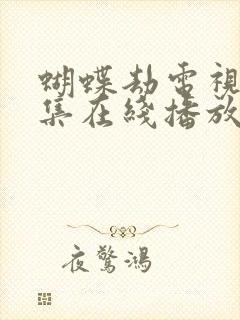 蝴蝶劫電視
集在綫播放
夜驚鴻